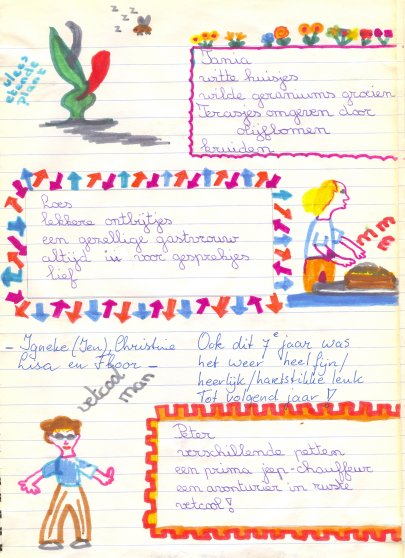 z z z
vlees
etende
plant
Tania
witte huisjes
wilde geraniums groeien
Terasjes omgeven door
olijfbomen
kruiden
Loes
lekkere ontbijtjes
een gezellige gastvrouw
altijd in voor gesprekjes
lief
m m m
- Igneke (Jen), Christine
Lisa en Floor -
Ook dit 7e jaar was
het weer heel fijn/
heerlijk/hartstikke leuk
Tot volgend jaar!
vetcool
man
Peter
verschillende petten
een prima jeep-chauffeur
een avonturier in ruste
vetcool!